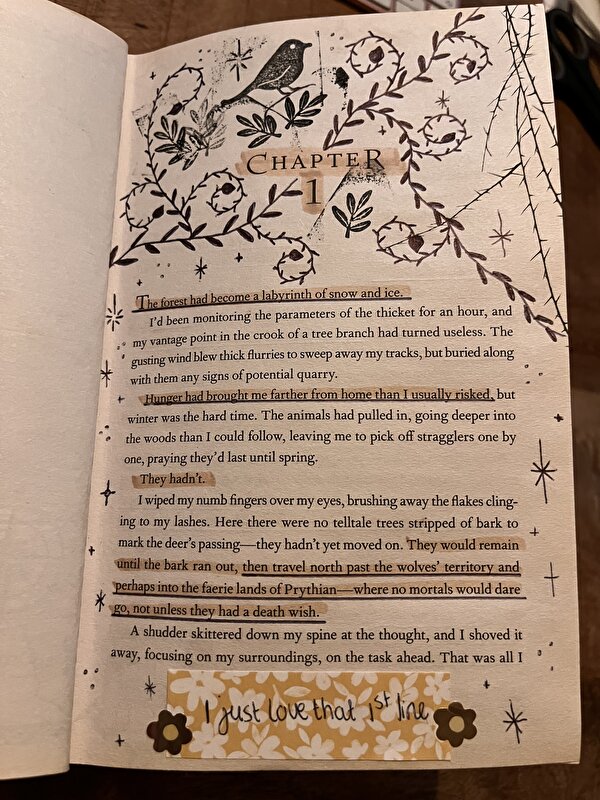 CHAPTER
1
The forest had become a labyrinth of snow and ice.
I'd been monitoring the parameters of the thicket for an hour, and
my vantage point in the crook of a tree branch had turned useless. The
gusting wind blew thick flurries to sweep away my tracks, but buried along
with them any signs of potential quarry.
Hunger had brought me farther from home than I usually risked, but
winter was the hard time. The animals had pulled in, going deeper into
the woods than I could follow, leaving me to pick off stragglers one by
one, praying they'd last until spring.
They hadn't.
I wiped my numb fingers over my eyes, brushing away the flakes cling-
ing to my lashes. Here there were no telltale trees stripped of bark to
mark the deer's passing—they hadn't yet moved on. They would remain
until the bark ran out, then travel north past the wolves' territory and
perhaps into the faerie lands of Prythian—where no mortals would dare
go, not unless they had a death wish.
A shudder skittered down my spine at the thought, and I shoved it
away, focusing on my surroundings, on the task ahead. That was all I
I just love that 1st line